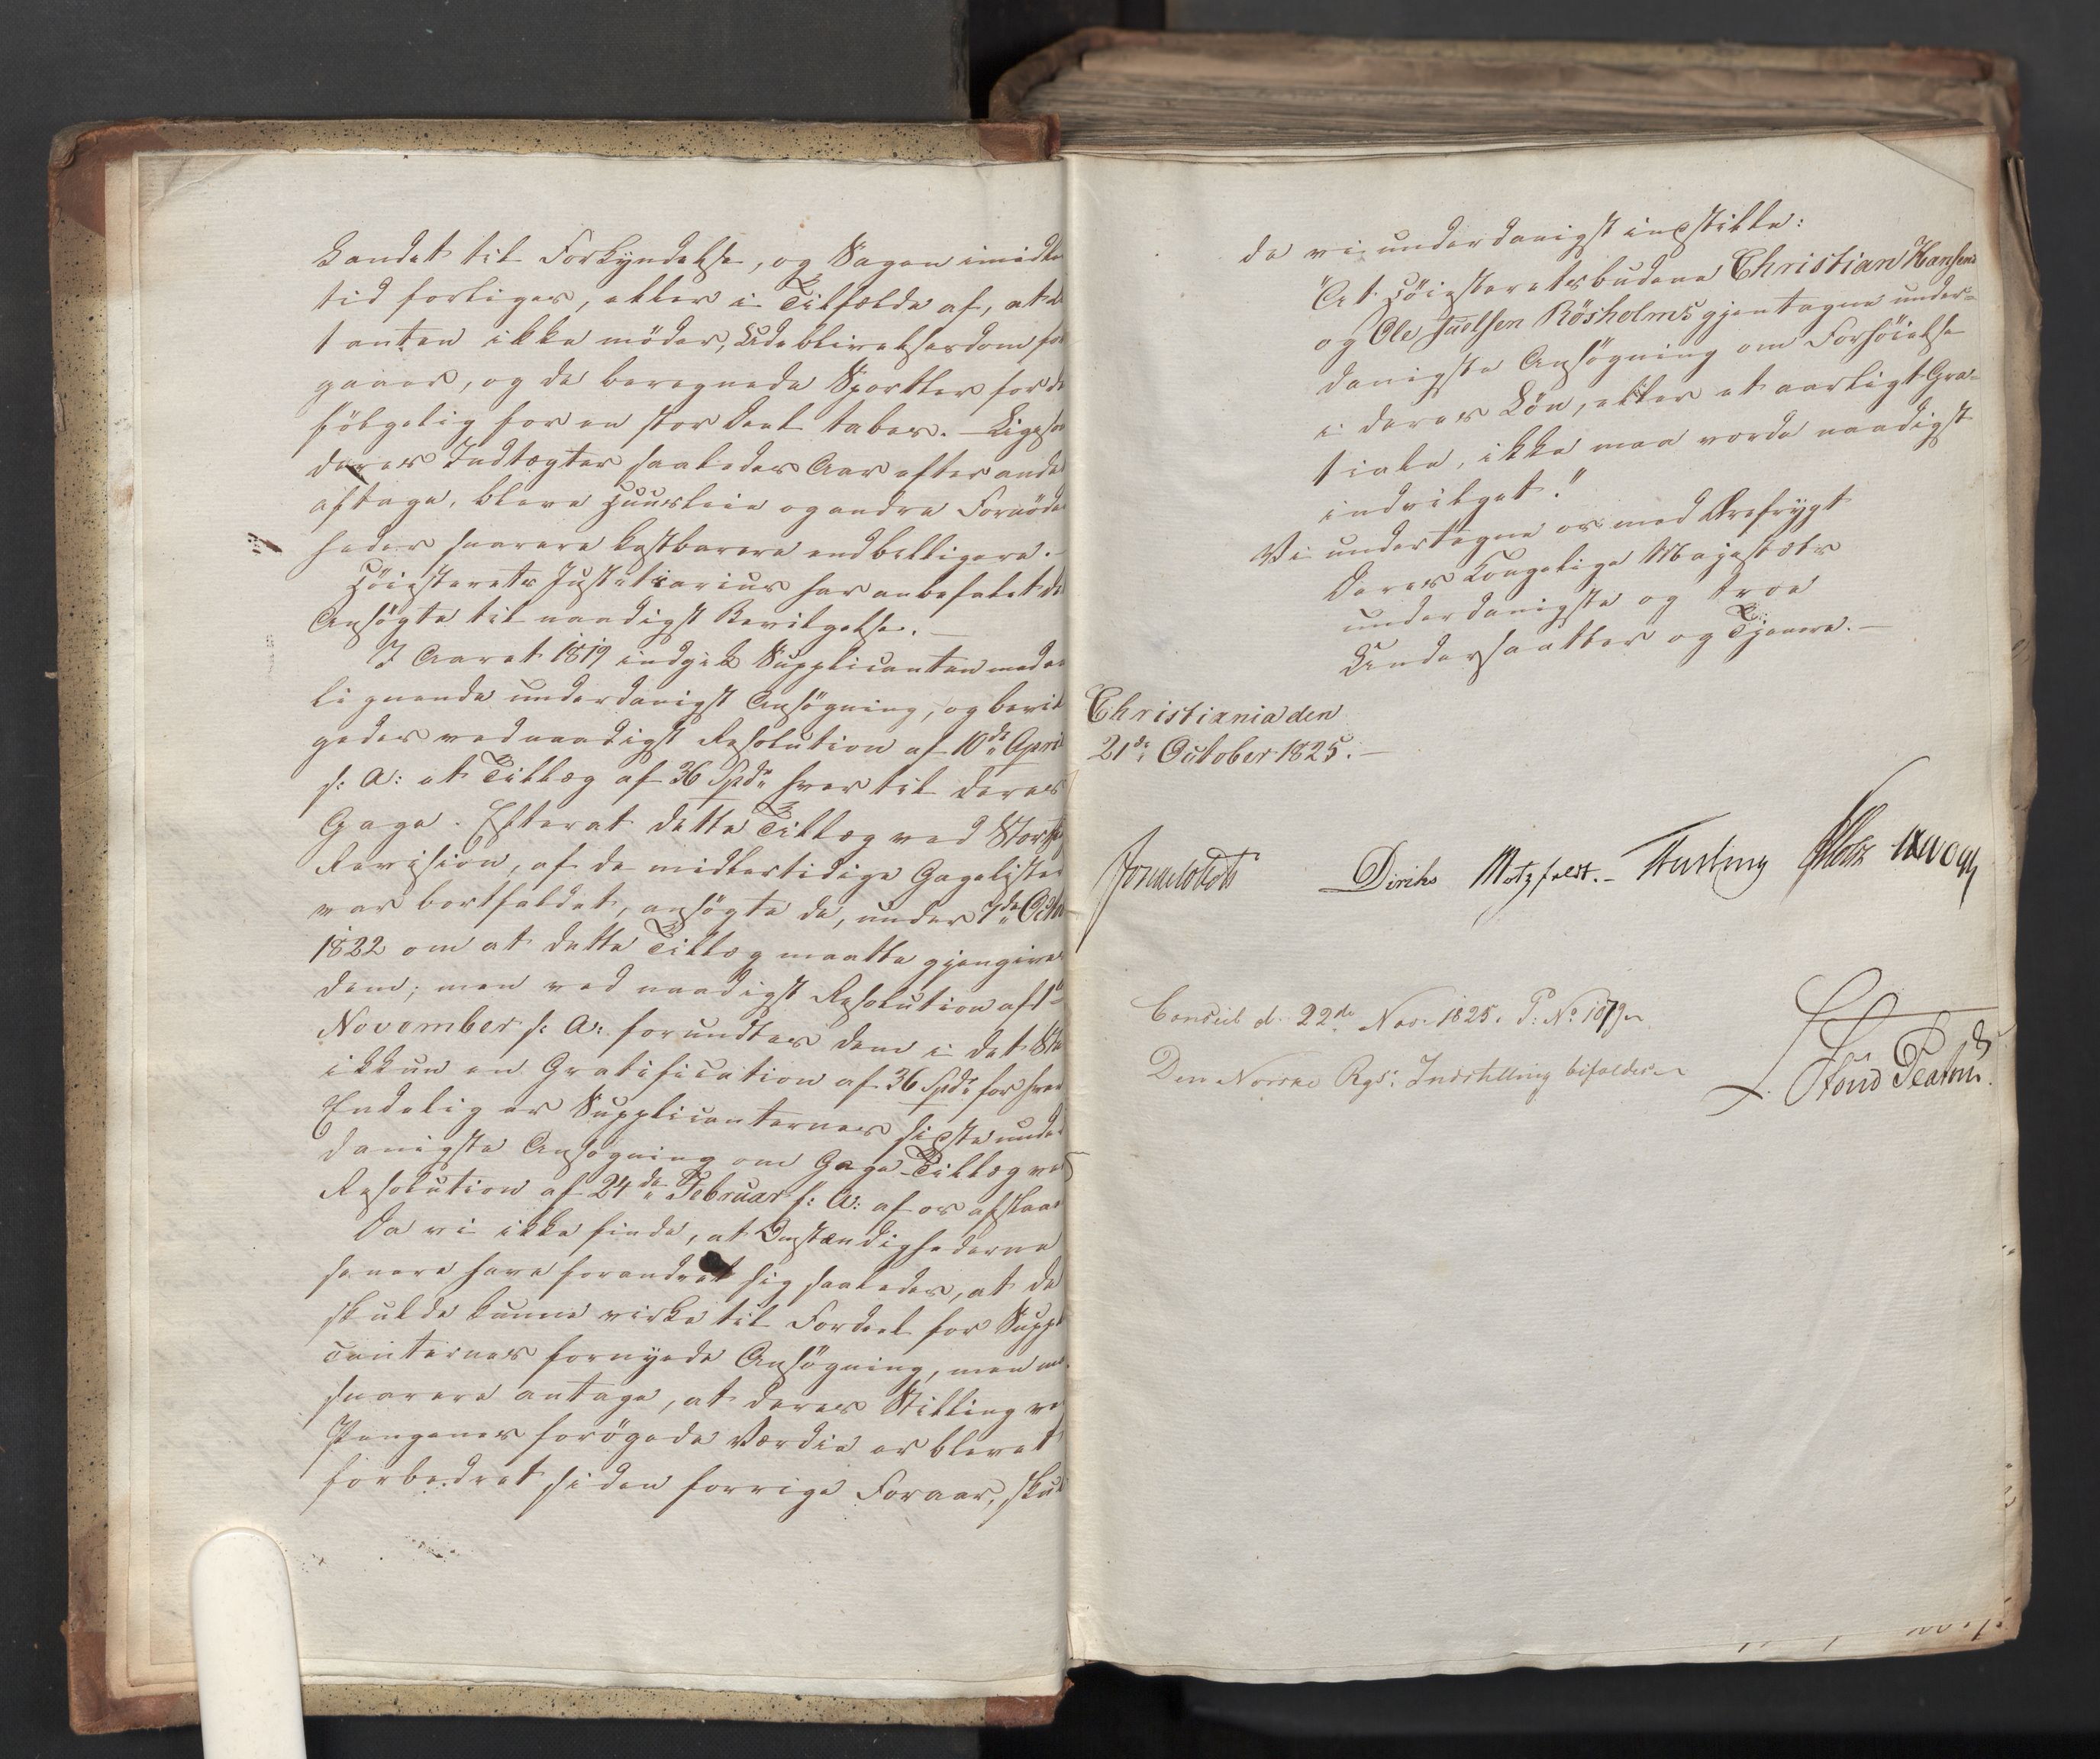 Landet til Forkyndelse, og Sagen imidler
tid forliges, eller i Tilfælde af, at
tanten ikke möder, Udeblivelsesdom for
gaaer, og de beregnede Sportler for de
fölgelig for en stor Deel tabes. – Ligesom
deres Indtægter saaledes Aar efter andet
aftage, bleve Huusleie og andre Fornöden
heder snarere kostbarere end billigere. –
Höiesterets Justitiarius har anbefalet det
Ansögte til naadigst Bevilgelse. –
I Aaret 1819 indgik Supplicanten med en
lignende underdanigst Ansögning, og bevil
gedes ved naadigst Resolution af 10de April
s: A: et Tillæg af 36 Spdr hver til deres
Gage. Efterat dette Tillæg ved Storth
Revision, af de midlertidige Gagelister
var bortfaldet, ansögte de, under 7de Octbr
1822 om at dette Tillæg maatte gjengives
dem; men ved naadigst Resolution af 1ste
November s: A: forundtes dem i det Sted
ikkun en Gratification af 36 Spdr for hver
Endelig er Supplicanternes sidste under
danigste Ansögning om Gage-Tillæg ved
Resolution af 24de Februar s: A: af os afslaaet
Da vi ikke finde, at Omstændighederne
senere have forandret sig saaledes, at de
skulde kunne virke til Fordeel for Suppli
canternes fornyede Ansögning, men maa
snarere antage, at deres Stilling ved
Pengenes forögede Værdie er blevet
forbedret siden forrige Foraar, skul
de vi underdanigst indstille:
"At Höiesteretsbudene Christian Hansens
og Ole Juelsen Rösholms gjentagne under-
danigste Ansögning om Forhöielse
i deres Lön, eller et aarligt Gra-
tiale, ikke maa vorde naadigst
indvilget."
Vi undertegne os med Ærefrygt
Deres Kongelige Majestæts
underdanigste og troe
Undersaatter og Tjenere. –
Christiania den
21de October 1825. –
Diriks Motzfeldt. –
Conseil d. 22de Nov. 1825. P: No 1879
Den Norske Rgs: Indstilling bifaldes